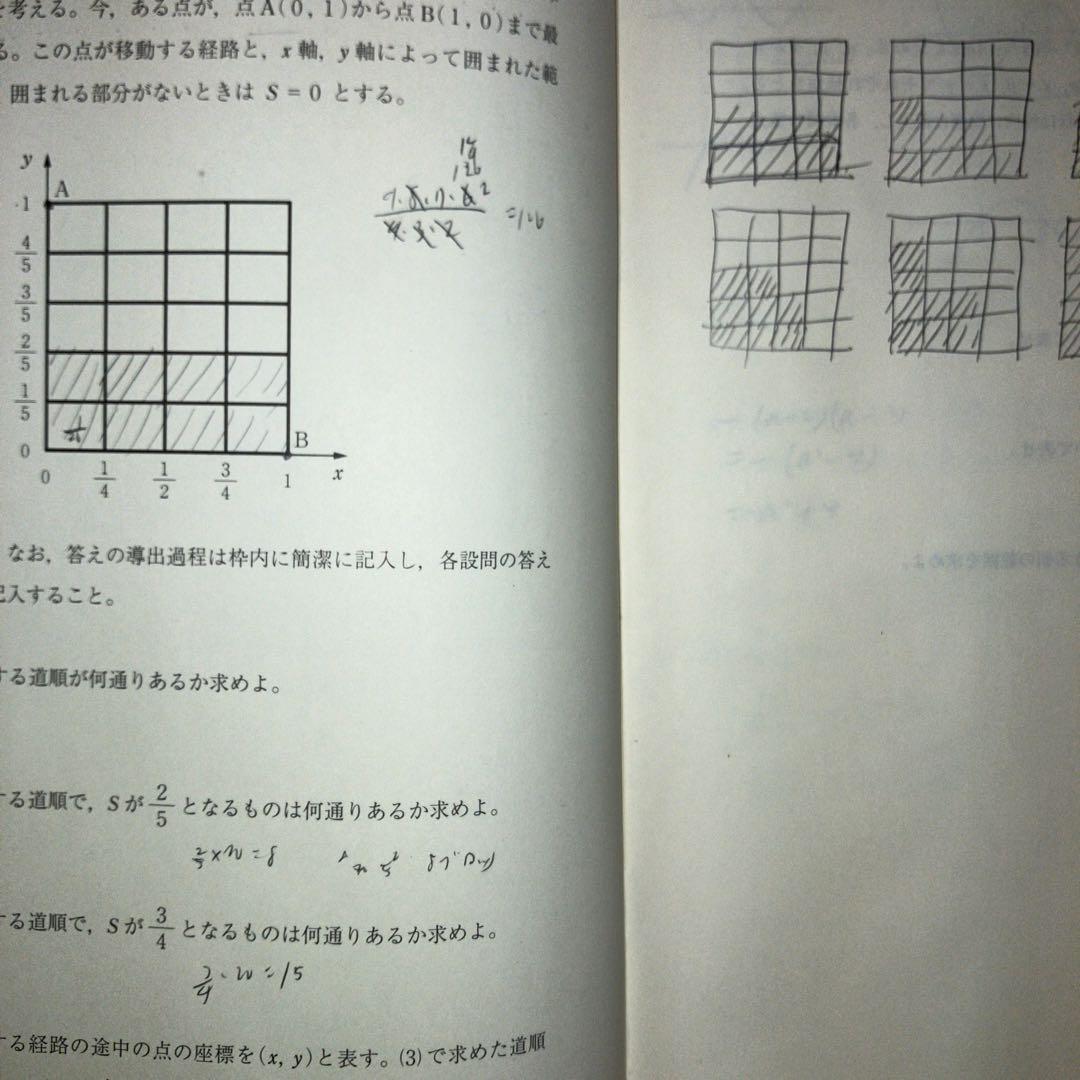 を考える。今，ある点が，点A(0, 1)から点B(1, 0)まで最
る。この点が移動する経路と，x軸，y軸によって囲まれた範
囲まれる部分がないときは S = 0 とする。
y
A
1
4/5
3/5
2/5
1/5
0
B
0 1/4 1/2 3/4 1 x
126
=126
なお，答えの導出過程は枠内に簡潔に記入し，各設問の答え
記入すること。
する道順が何通りあるか求めよ。
する道順で，Sが 2/5 となるものは何通りあるか求めよ。
2/5×20=8
する道順で，Sが 3/4 となるものは何通りあるか求めよ。
3/4・20=15
する経路の途中の点の座標を(x, y)と表す。(3)で求めた道順